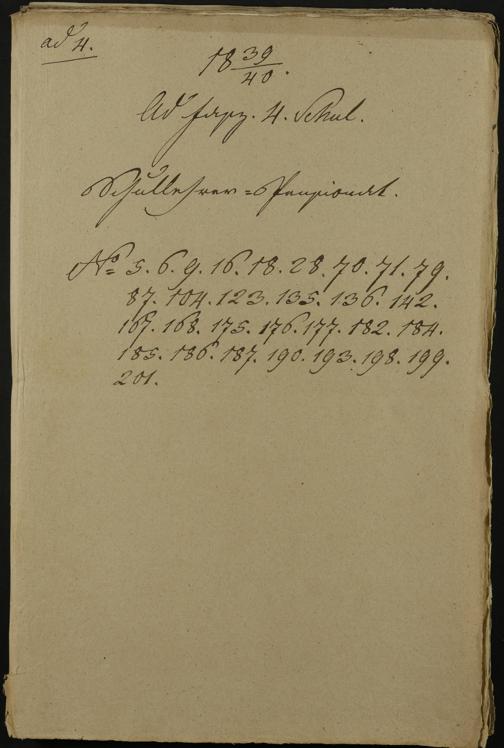 ad 4.
18 39/40.
Ad fasz. 4. Schul.
Schullehrer=Pensionat.
No 5. 6. 9. 16. 18. 28. 70. 71. 79.
87. 104. 123. 135. 136. 142.
167. 168. 175. 176. 177. 182. 184.
185. 186. 187. 190. 193. 198. 199.
201.